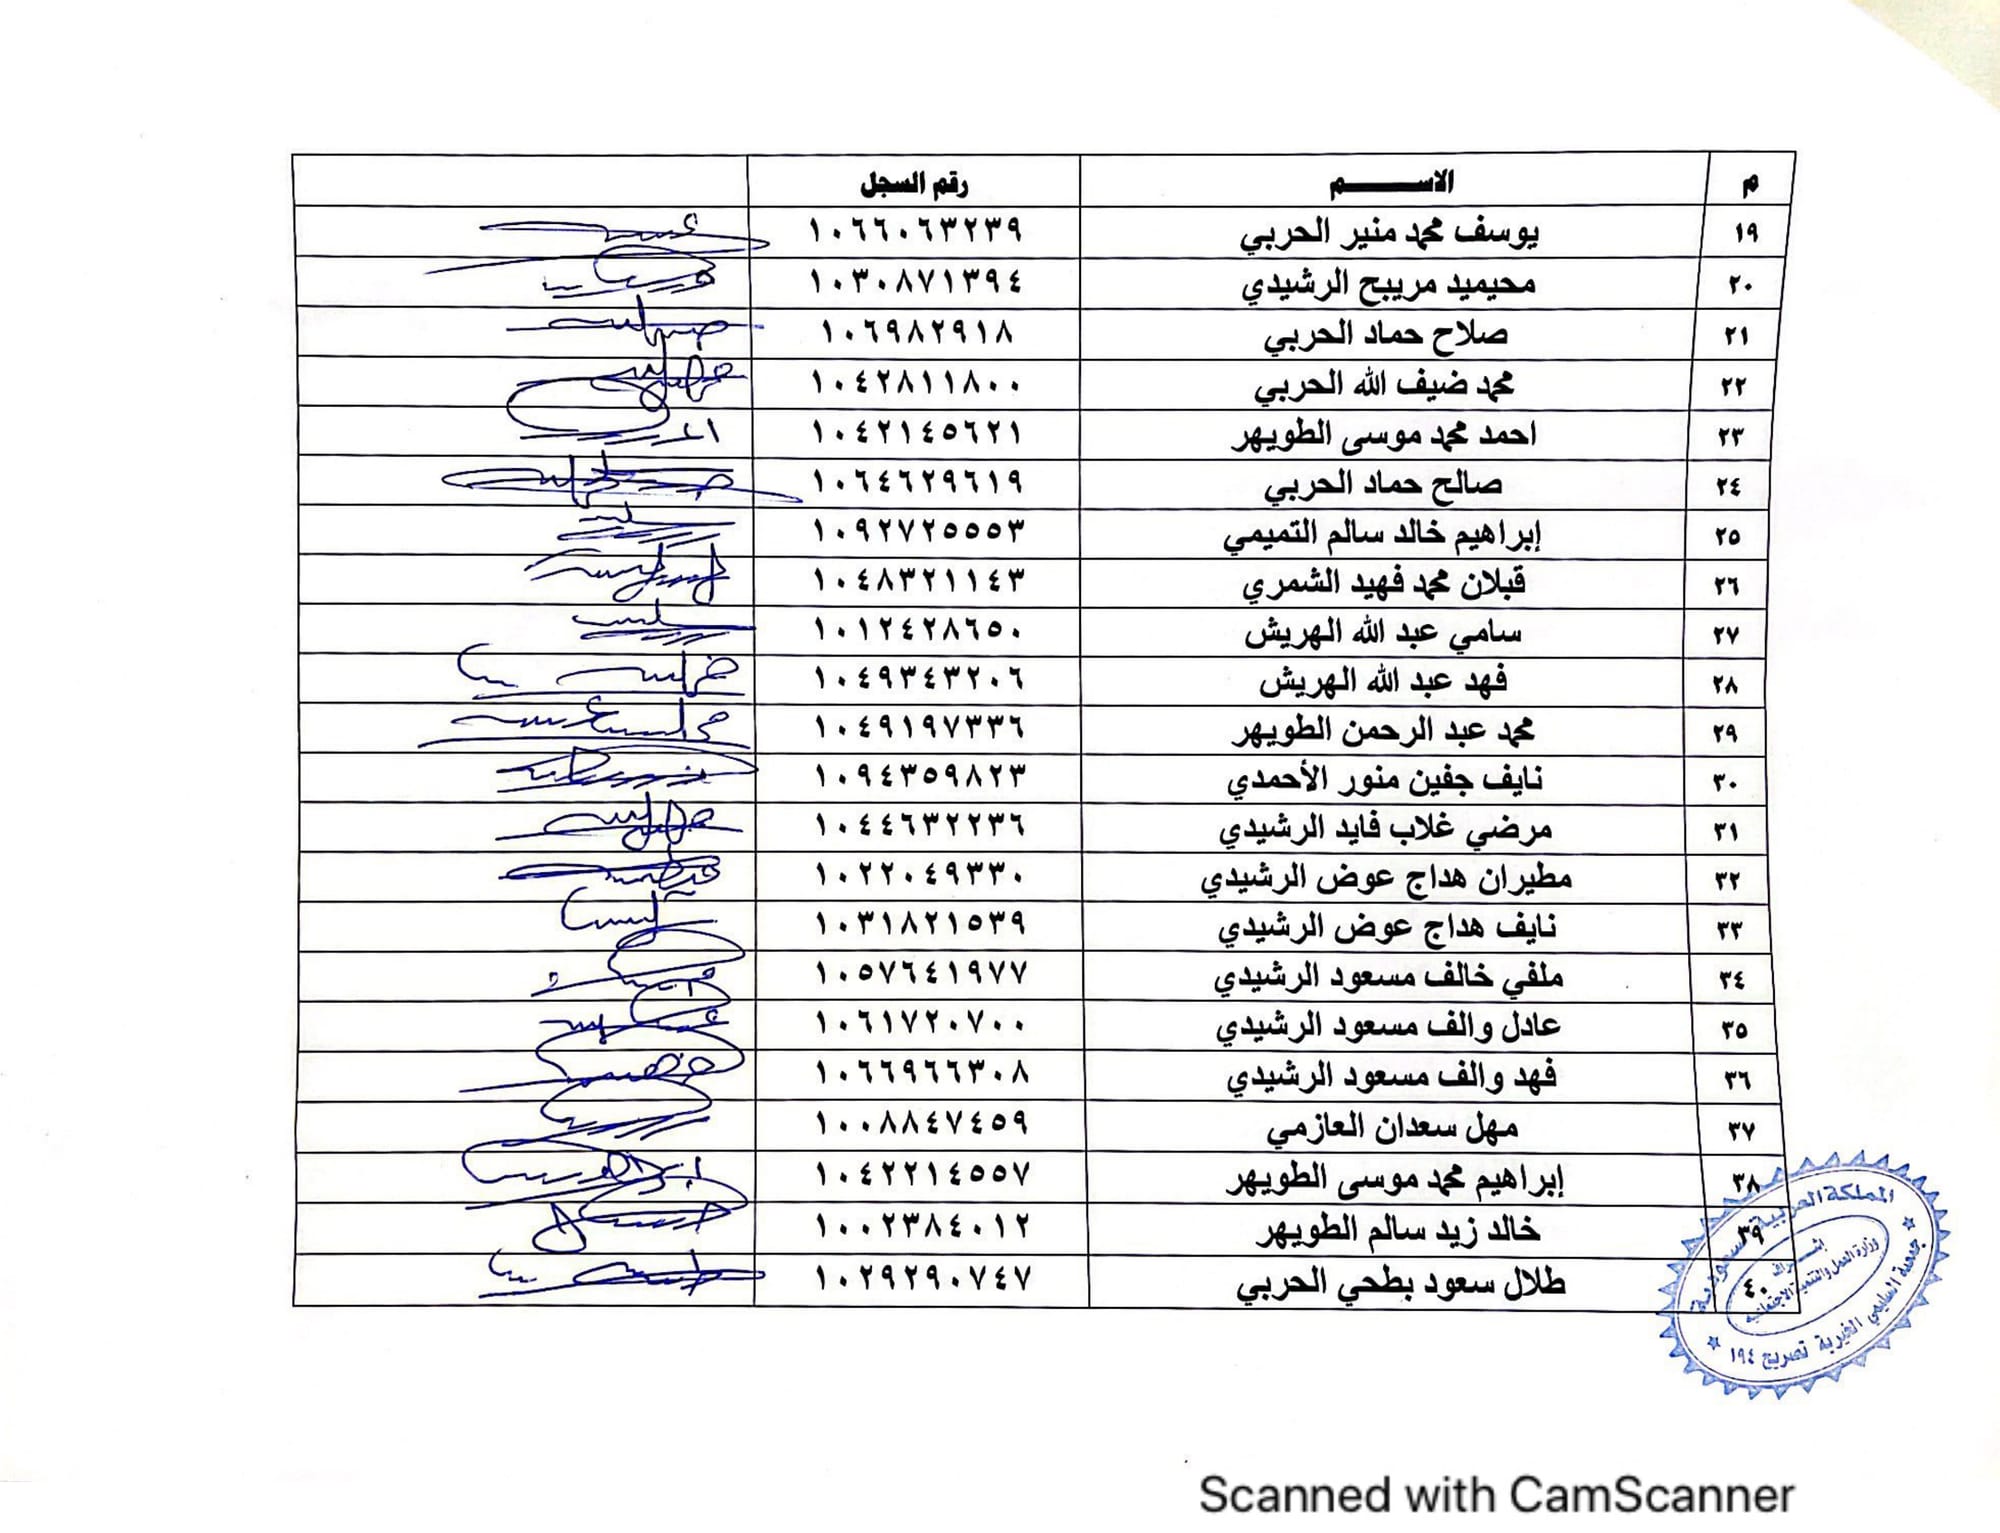 م الاســـــم رقم السجل
١٩ يوسف محمد منير الحربي ١٠٦٦٠٦٣٢٣٩
٢٠ محيميد مريبح الرشيدي ١٠٣٠٨٧١٣٩٤
٢١ صلاح حماد الحربي ١٠٦٩٨٢٩١٨
٢٢ محمد ضيف الله الحربي ١٠٤٢٨١١٨٠٠
٢٣ احمد محمد موسى الطويهر ١٠٤٢١٤٥٦٢١
٢٤ صالح حماد الحربي ١٠٦٤٦٢٩٦١٩
٢٥ إبراهيم خالد سالم التميمي ١٠٩٢٧٢٥٥٥٣
٢٦ قبلان محمد فهيد الشمري ١٠٤٨٣٢١١٤٣
٢٧ سامي عبد الله الهريش ١٠١٢٤٢٨٦٥٠
٢٨ فهد عبد الله الهريش ١٠٤٩٣٤٣٢٠٦
٢٩ محمد عبد الرحمن الطويهر ١٠٤٩١٩٧٣٣٦
٣٠ نايف جفين منور الأحمدي ١٠٩٤٣٥٩٨٢٣
٣١ مرضي غلاب فايد الرشيدي ١٠٤٤٦٣٢٢٣٦
٣٢ مطيران هداج عوض الرشيدي ١٠٢٢٠٤٩٣٣٠
٣٣ نايف هداج عوض الرشيدي ١٠٣١٨٢١٥٣٩
٣٤ ملفي خالف مسعود الرشيدي ١٠٥٧٦٤١٩٧٧
٣٥ عادل والف مسعود الرشيدي ١٠٦١٧٢٠٧٠٠
٣٦ فهد والف مسعود الرشيدي ١٠٦٦٩٦٦٣٠٨
٣٧ مهل سعدان العازمي ١٠٠٨٨٤٧٤٥٩
٣٨ إبراهيم محمد موسى الطويهر ١٠٤٢٢١٤٥٥٧
٣٩ خالد زيد سالم الطويهر ١٠٠٢٣٨٤٠١٢
٤٠ طلال سعود بطحي الحربي ١٠٢٩٢٩٠٧٤٧
المملكة العربية السعودية
إشراف
وزارة العمل والتنمية الاجتماعية
جمعية السليمي الخيرية تصريح ١٩٤
Scanned with CamScanner